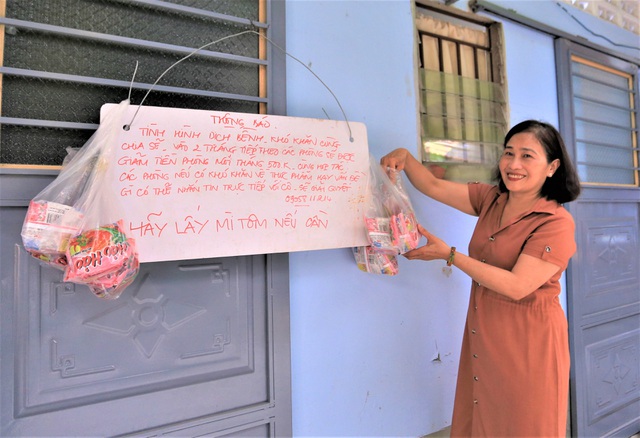 THÔNG BÁO
TÌNH HÌNH DỊCH BỆNH, KHÓ KHĂN CÙNG
CHIA SẺ. VÀO 2 THÁNG TIẾP THEO CÁC PHÒNG SẼ ĐƯỢC
GIẢM TIỀN PHÒNG MỖI THÁNG 500K.
CÁC PHÒNG NẾU CÓ KHÓ KHĂN VỀ THỰC PHẨM HAY VẤN ĐỀ
GÌ CÓ THỂ NHẮN TIN TRỰC TIẾP VỚI CÔ. SẼ GIẢI QUYẾT
HÃY LẤY MÌ TÔM NẾU CẦN
Hảo Hảo